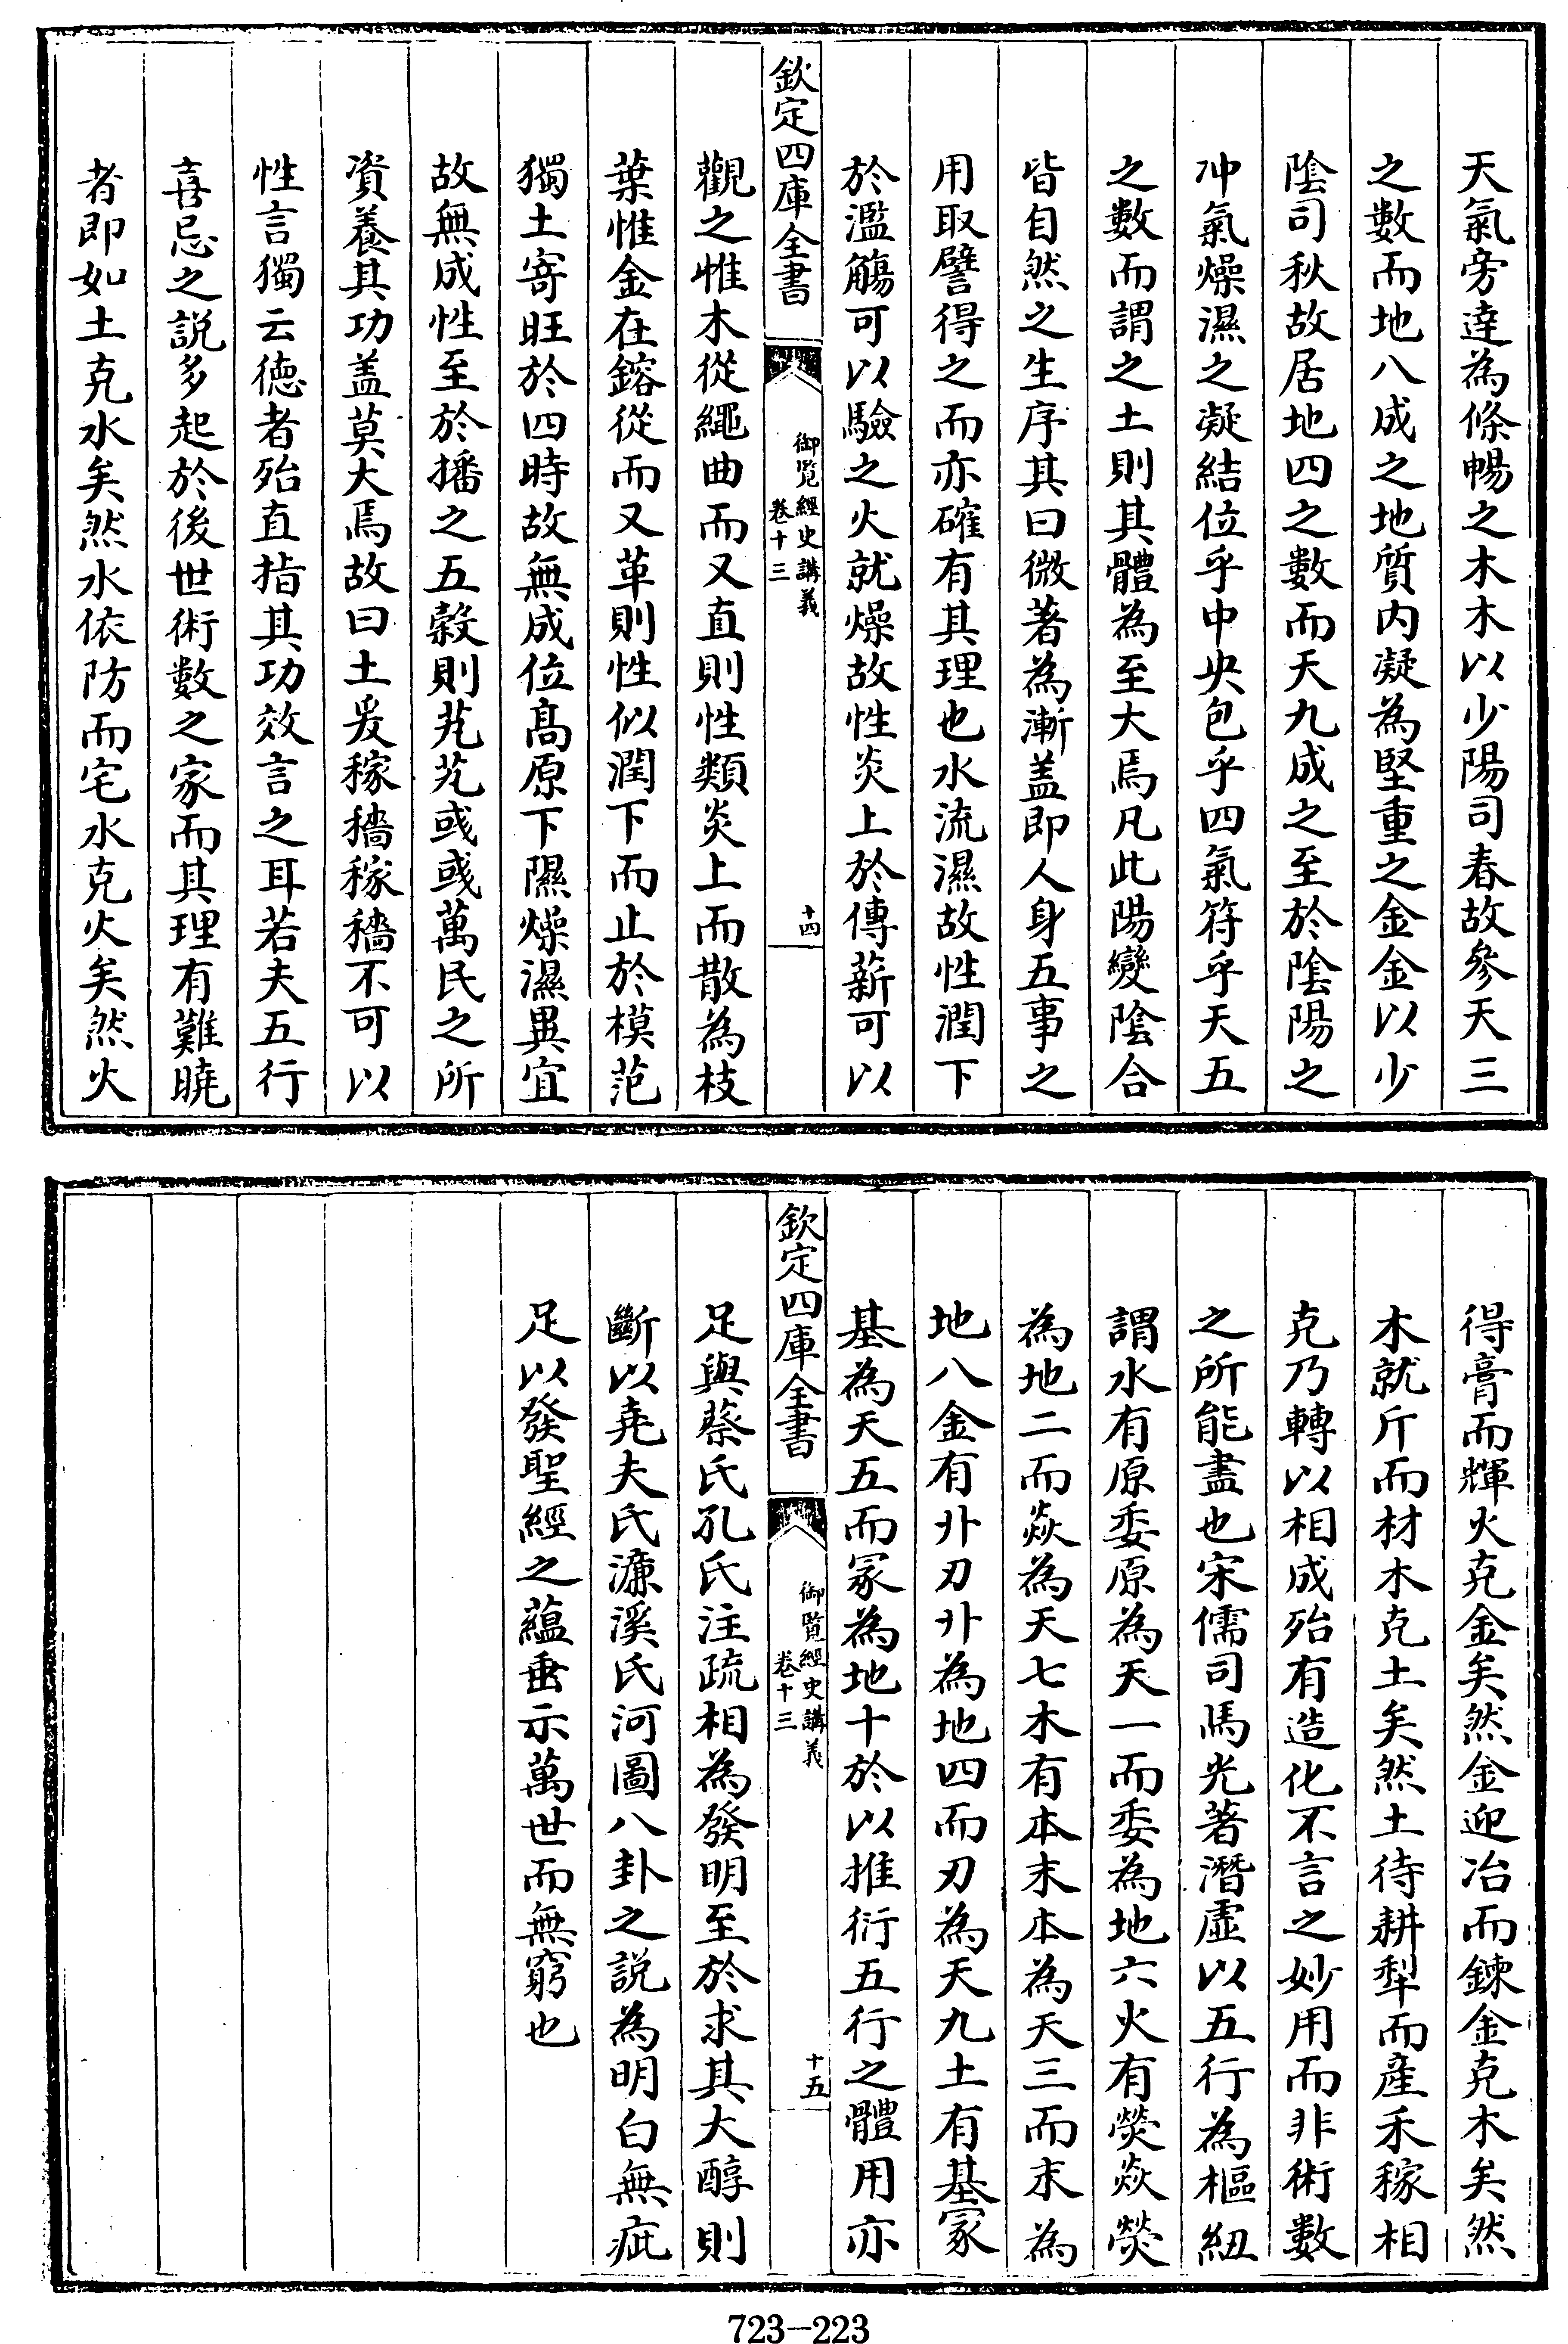 天氣旁逹為條暢之木木以少陽司春故參天三
之數而地八成之地質内凝為堅重之金金以少
陰司秋故居地四之數而天九成之至於陰陽之
冲氣燥濕之凝結位乎中央包乎四氣符乎天五
之數而謂之土則其體為至大焉凡此陽變陰合
皆自然之生序其曰微著為漸盖即人身五事之
用取譬得之而亦確有其理也水流濕故性潤下
於濫觴可以驗之火就燥故性炎上於傳薪可以
欽定四庫全書
御覧經史講義
卷十三
十四
觀之惟木從繩曲而又直則性類炎上而散為枝
葉惟金在鎔從而又革則性似潤下而止於模范
獨土寄旺於四時故無成位髙原下隰燥濕異宜
故無成性至於播之五穀則芃芃彧彧萬民之所
資養其功盖莫大焉故曰土爰稼穡稼穡不可以
性言獨云徳者殆直指其功效言之耳若夫五行
喜忌之説多起於後世術數之家而其理有難曉
者即如土克水矣然水依防而宅水克火矣然火
得膏而輝火克金矣然金迎冶而鍊金克木矣然
木就斤而材木克土矣然土待耕犁而産禾稼相
克乃轉以相成殆有造化不言之妙用而非術數
之所能盡也宋儒司馬光著潛虚以五行為樞紐
謂水有原委原為天一而委為地六火有熒焱熒
為地二而焱為天七木有本末本為天三而末為
地八金有丱刃丱為地四而刃為天九土有基冡
基為天五而冡為地十於以推衍五行之體用亦
欽定四庫全書
御覧經史講義
卷十三
十五
足與蔡氏孔氏注疏相為發明至於求其大醇則
斷以堯夫氏濂溪氏河圖八卦之説為明白無疵
足以發聖經之蘊垂示萬世而無窮也
723-223